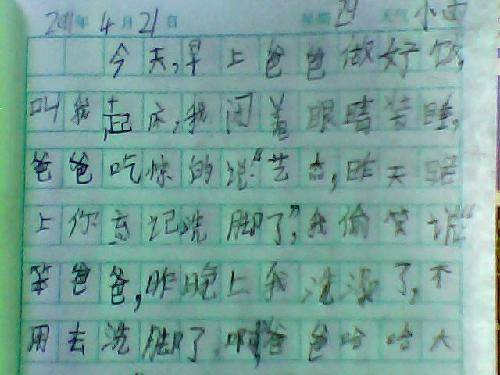 2011年4月21日 星期四 天气 小雨
今天,早上爸爸做好饭,
叫我起床,我闭着眼睛装睡,
爸爸吃惊的说:“艺 ,昨天晚
上你忘记洗脚了”,我偷笑说“
笨爸爸,昨晚上我洗澡了,不
用去洗脚了 爸爸哈哈大